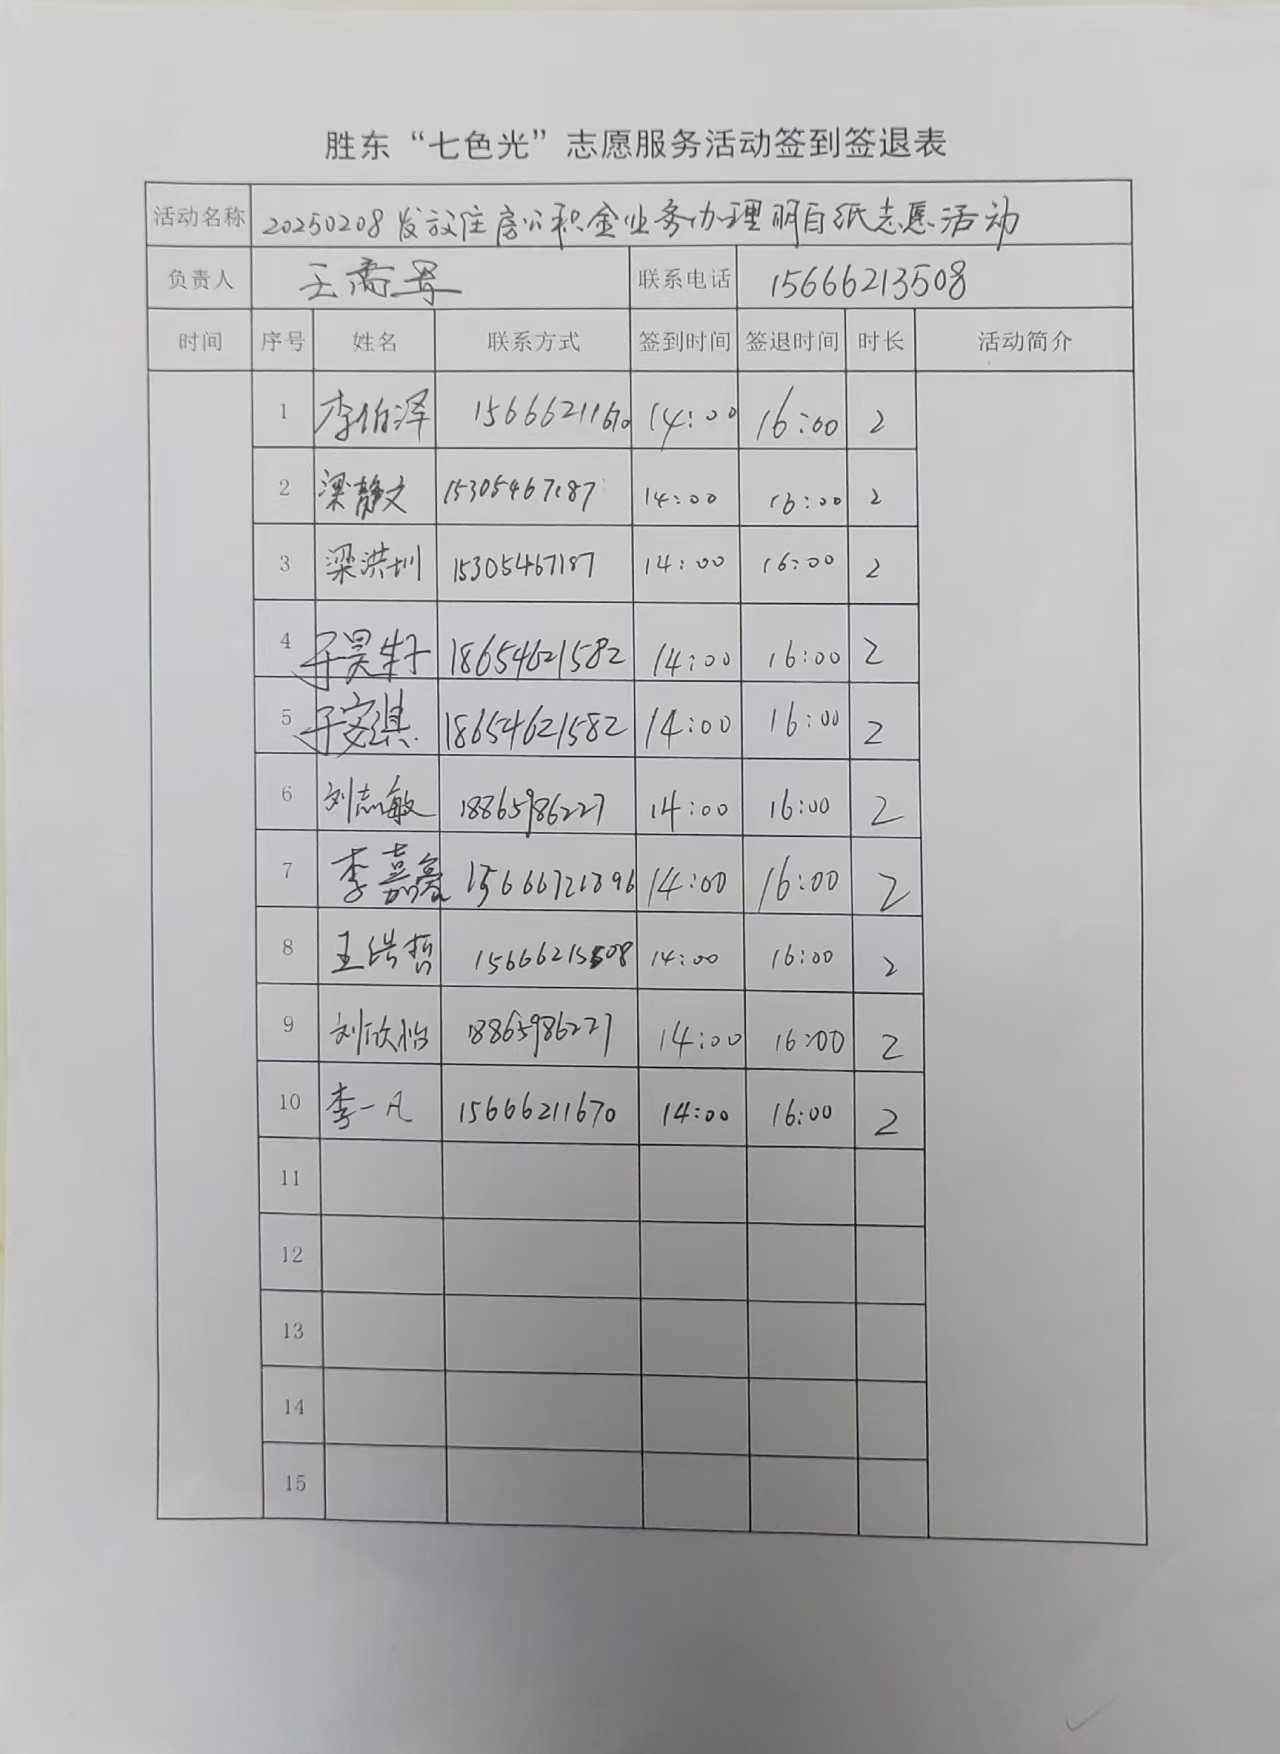 胜东“七色光”志愿服务活动签到签退表
活动名称 20250208发放住房公积金业务办理明白纸志愿活动
负责人 王 联系电话 15666213508
时间 序号 姓名 联系方式 签到时间 签退时间 时长 活动简介
1 李伯泽 15666211670 14:00 16:00 2
2 梁静文 15305467187 14:00 16:00 2
3 梁洪圳 15305467187 14:00 16:00 2
4 于昊 18654621582 14:00 16:00 2
5 于安淇 18654621582 14:00 16:00 2
6 刘志敏 18865986227 14:00 16:00 2
7 李嘉 14:00 16:00 2
8 王浩哲 15666213508 14:00 16:00 2
9 刘欣怡 18865986227 14:00 16:00 2
10 李一凡 15666211670 14:00 16:00 2
11
12
13
14
15